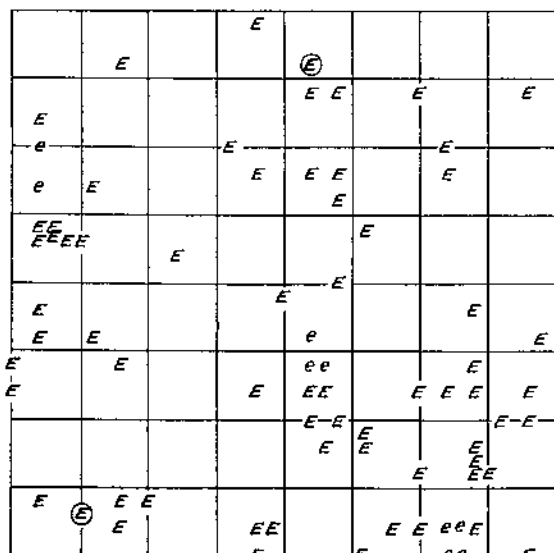 E
E E
E E E E
E
e E E
E E E E
e E
E
E E
E E E E E
E
E
E
E E
E E e E
E E e e E
E E E E E E E E
E E E E
E
E E E
E
E E E
E E E
E
E E E E E e e E
E E e e E